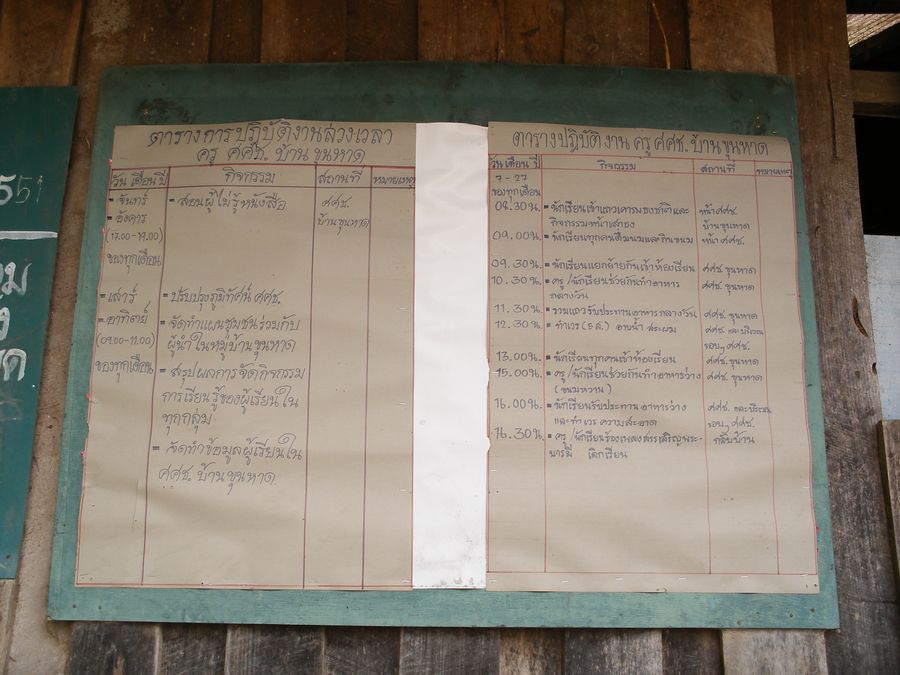 ตารางการปฏิบัติงานล่วงเวลา
ครู ศศช. บ้านขุนหาด
วัน เดือน ปี กิจกรรม สถานที่ หมายเหตุ
- จันทร์ - สอนผู้ไม่รู้หนังสือ ศศช.
- อังคาร บ้านขุนหาด
(17.00-19.00)
ของทุกเดือน
- เสาร์ - ปรับปรุงภูมิทัศน์ ศศช.
- อาทิตย์ - จัดทำแผนชุมชนร่วมกับ
(09.00-11.00) ผู้นำในหมู่บ้านขุนหาด
ของทุกเดือน - สรุปผลการจัดกิจกรรม
การเรียนรู้ของผู้เรียนใน
ทุกกลุ่ม
- จัดทำข้อมูลผู้เรียนใน
ศศช. บ้านขุนหาด
ตารางปฏิบัติงาน ครู ศศช. บ้านขุนหาด
วัน เดือน ปี กิจกรรม สถานที่ หมายเหตุ
7 - 27
ของทุกเดือน
08.30น. - นักเรียนเข้าแถวเคารพธงชาติและ หน้า ศศช.
กิจกรรมหน้าเสาธง บ้านขุนหาด
09.00น. - นักเรียนทุกคนดื่มนมและกินขนม หน้า ศศช.
09.30น. - นักเรียนแยกย้ายกันเข้าห้องเรียน ศศช. ขุนหาด
10.30น. - ครู /นักเรียนช่วยกันทำอาหาร ศศช. ขุนหาด
กลางวัน
11.30น. - รวมแถวรับประทานอาหารกลางวัน ศศช. ขุนหาด
12.30น. - ทำเวร (5 ส.) อาบน้ำ สระผม ศศช. และบริเวณ
รอบๆ ศศช.
13.00น. - นักเรียนทุกคนเข้าห้องเรียน ศศช. ขุนหาด
15.00น. - ครู /นักเรียนช่วยกันทำอาหารว่าง ศศช. ขุนหาด
(ขนมหวาน)
16.00น. - นักเรียนรับประทานอาหารว่าง ศศช. และบริเวณ
และทำเวร ความสะอาด รอบๆ ศศช.
16.30น. - ครู /นักเรียนร้องเพลงสรรเสริญพระ- กลับบ้าน
บารมี เลิกเรียน
551